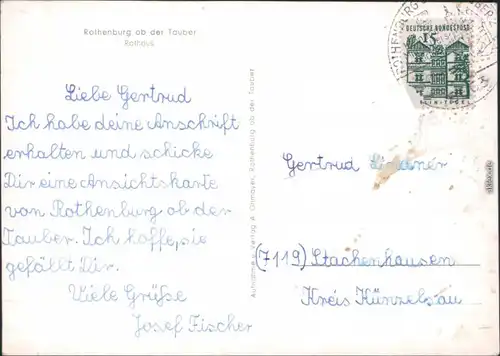 Rothenburg ob der Tauber
Rathaus
Liebe Gertrud
Ich habe deine Anschrift
erhalten und schicke
Dir eine Ansichtskarte
von Rothenburg ob der
Tauber. Ich hoffe, sie
gefällt Dir.
Viele Grüße
Josef Fischer
Aufnahme u. Verlag A. Ohmayer, Rothenburg ob der Tauber
DEUTSCHE BUNDESPOST
15
Gertrud
(7119) Stachenhausen
Kreis Künzelsau